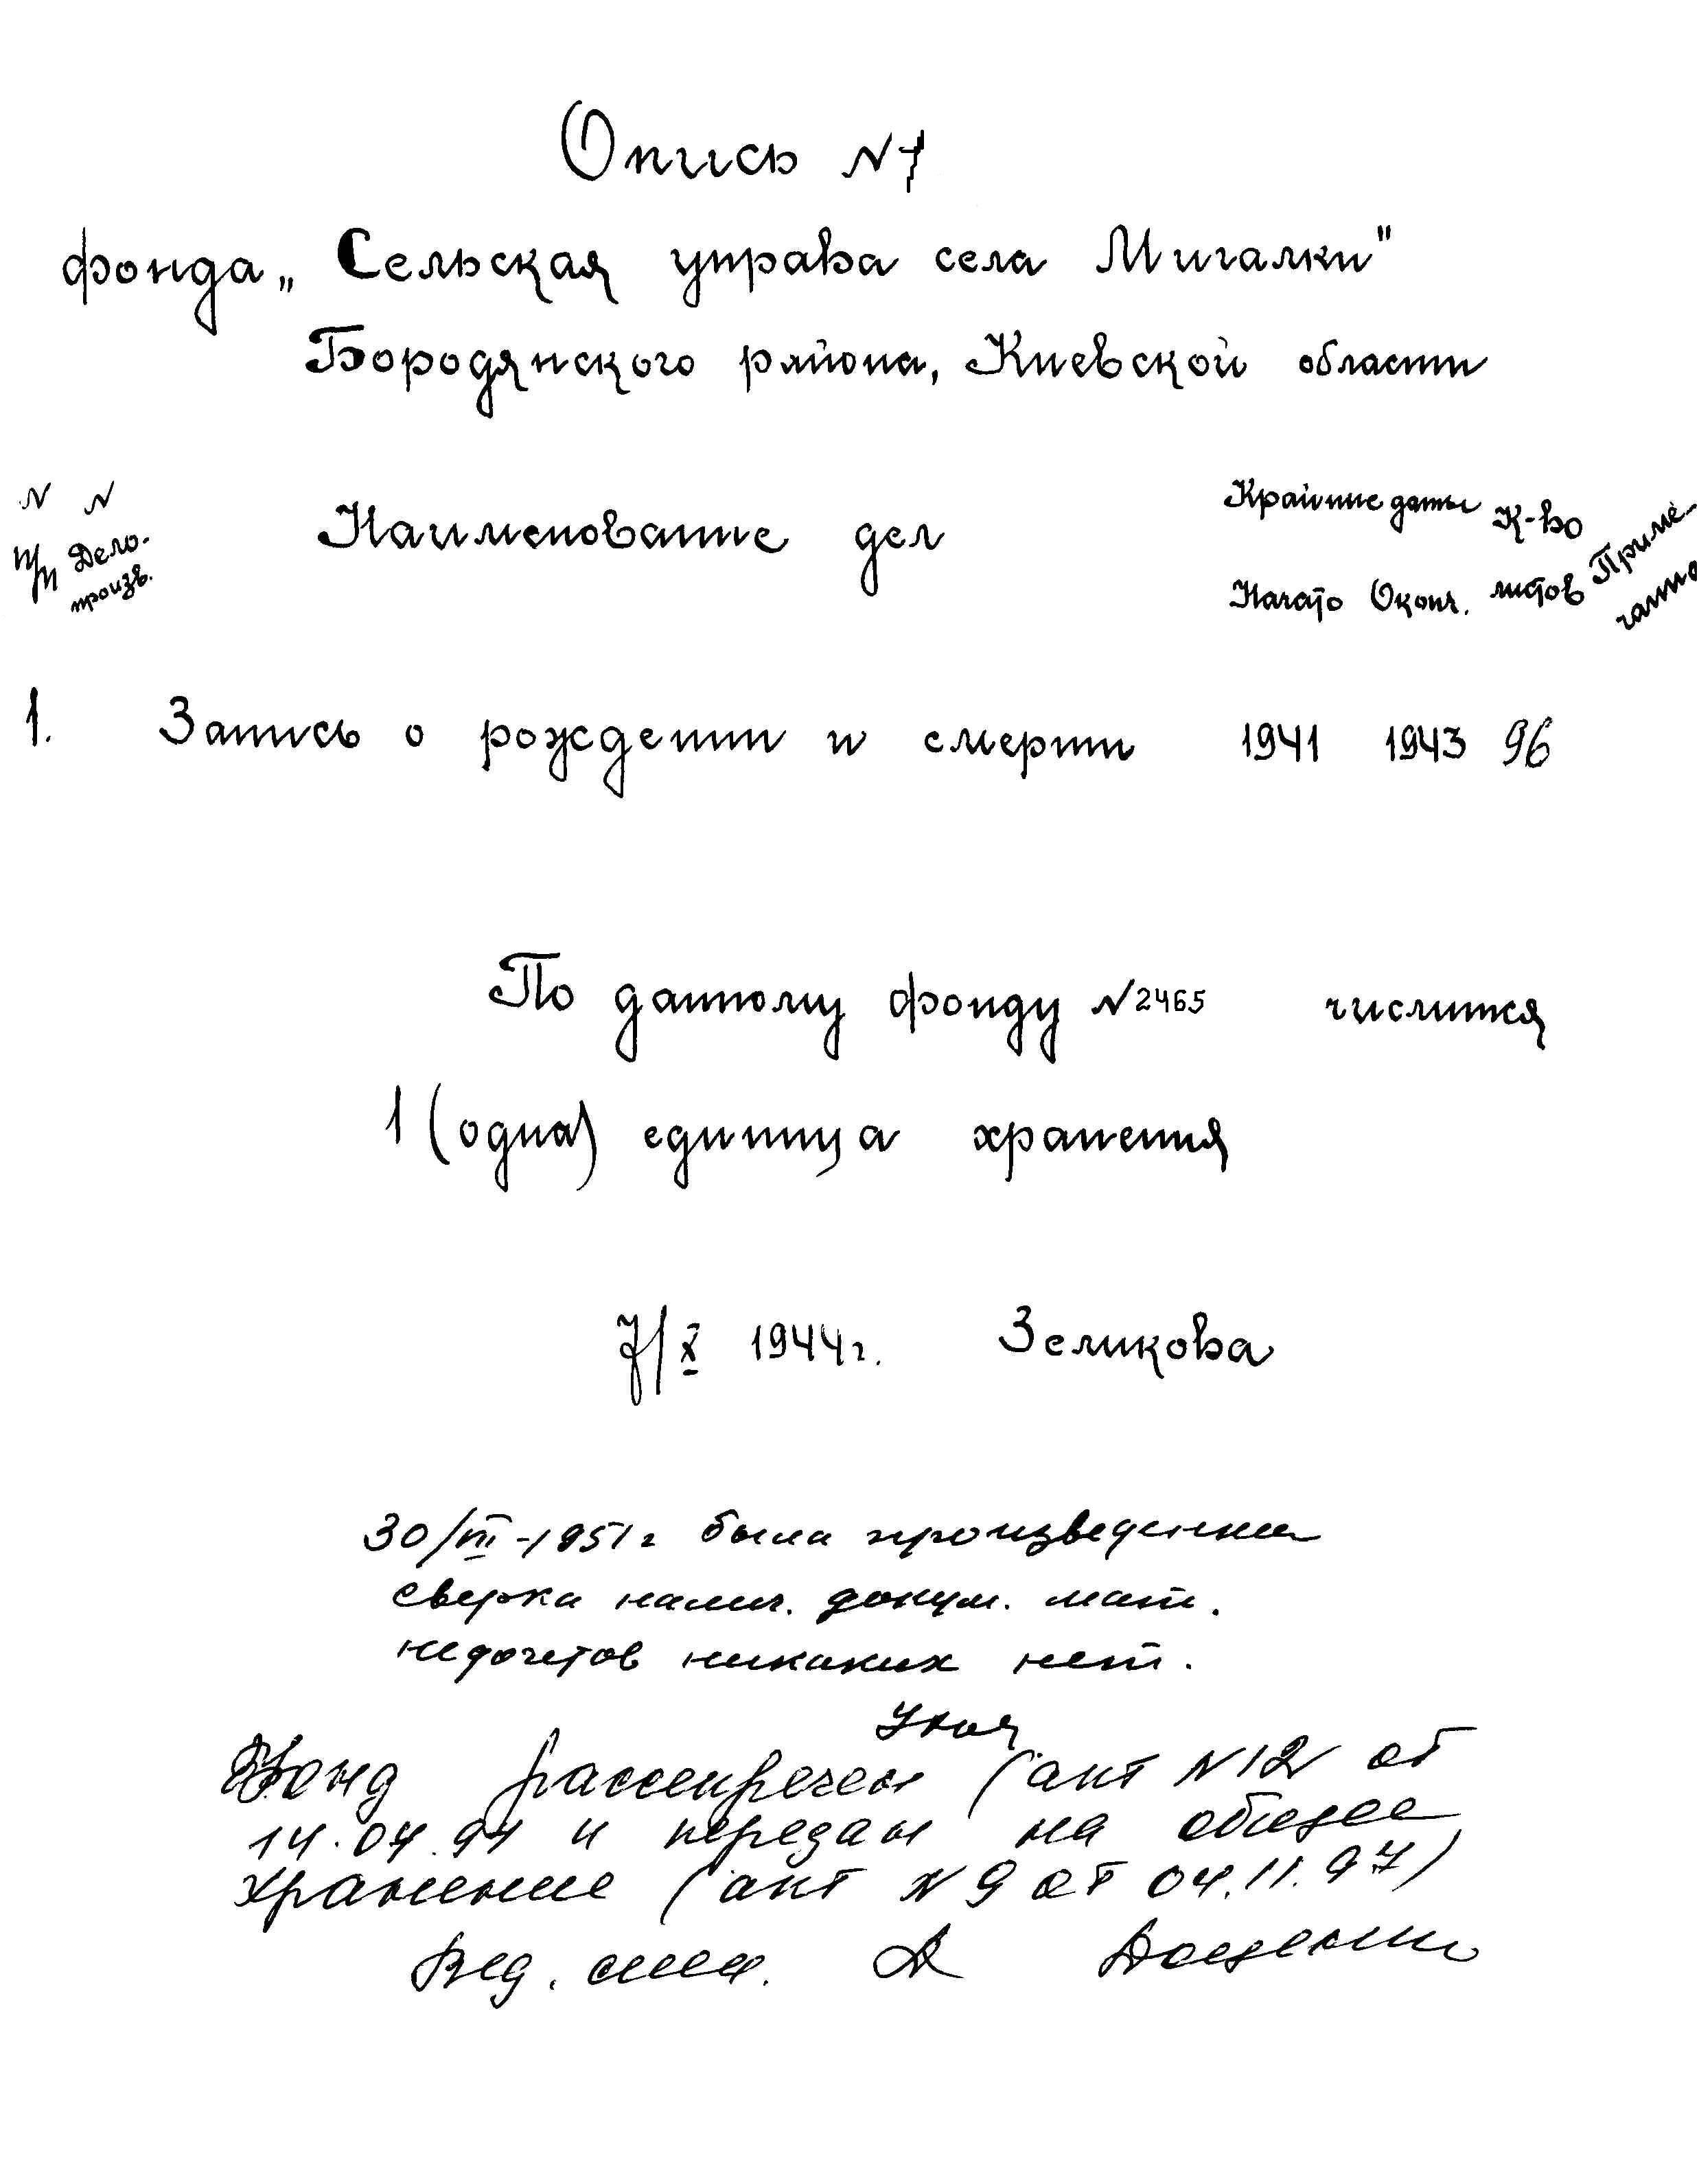 Опись N 1
фонда „Сельская управа села Мигалки"
Бородянского района, Киевской области
N N Наименование дел Крайние даты К-во Приме-
пп Дело- Начато Оконч. листов чание
произв.
1. Запись о рождении и смерти 1941 1943 96
По данному фонду N 2465 числится
1 (одна) единица хранения
7/X 1944 г. Зеликова
30/III-1951 г была произведенна
сверка налич. докум. мат.
недочетов никаких нет.
Фонд рассекречен (акт N 12 от
14.04.94 и передан на общее
хранение (акт N 9 от 04.11.97)
Вед. спец.